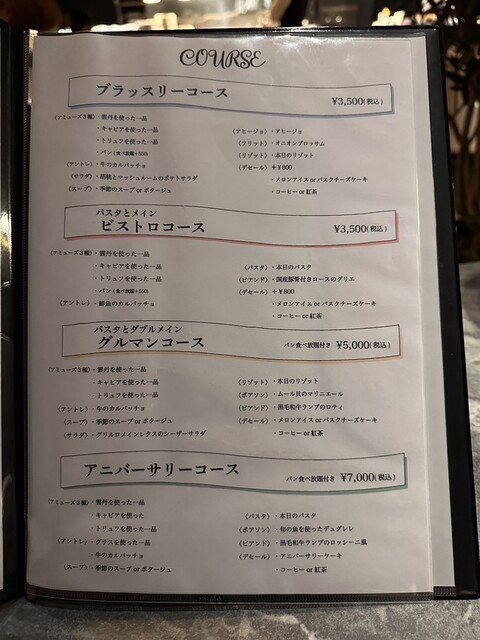 COURSE
ブラッスリーコース
¥3,500(税込)
(アミューズ3種)・雲丹を使った一品
・キャビアを使った一品
・トリュフを使った一品
・パン(食べ放題+550)
(アントレ)・牛のカルパッチョ
(サラダ)・胡桃とマッシュルームのポテトサラダ
(スープ)・季節のスープ or ポタージュ
(アヒージョ)・アヒージョ
(フリット)・オニオンブロッサム
(リゾット)・本日のリゾット
(デセール)+¥800
・メロンアイス or バスクチーズケーキ
・コーヒー or 紅茶
パスタとメイン
ビストロコース
¥3,500(税込)
(アミューズ3種)・雲丹を使った一品
・キャビアを使った一品
・トリュフを使った一品
・パン(食べ放題+550)
(アントレ)・鮮魚のカルパッチョ
(パスタ)・本日のパスタ
(ビアンド)・国産豚骨付きロースのグリエ
(デセール)+¥800
・メロンアイス or バスクチーズケーキ
・コーヒー or 紅茶
パスタとダブルメイン
グルマンコース
パン食べ放題付き ¥5,000(税込)
(アミューズ3種)・雲丹を使った一品
・キャビアを使った一品
・トリュフを使った一品
(アントレ)・牛のカルパッチョ
(スープ)・季節のスープ or ポタージュ
(サラダ)・グリルロメインレタスのシーザーサラダ
(リゾット)・本日のリゾット
(ポアソン)・ムール貝のマリニエール
(ビアンド)・黒毛和牛ランプのロティ
(デセール)・メロンアイス or バスクチーズケーキ
・コーヒー or 紅茶
アニバーサリーコース
パン食べ放題付き ¥7,000(税込)
(アミューズ3種)・雲丹を使った一品
・キャビアを使った
・トリュフを使った一品
(アントレ)・グラスを使った一品
・牛のカルパッチョ
(スープ)・季節のスープ or ポタージュ
(パスタ)・本日のパスタ
(ポアソン)・旬の魚を使ったデュグレレ
(ビアンド)・黒毛和牛ランプのロッシーニ風
(デセール)・アニバーサリーケーキ
・コーヒー or 紅茶